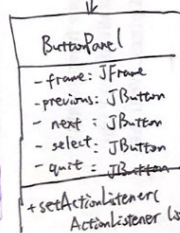 ButtonPanel
- frame: JFrame
- previous: JButton
- next: JButton
- select: JButton
- quit: JButton
+ setActionListener(
ActionListener